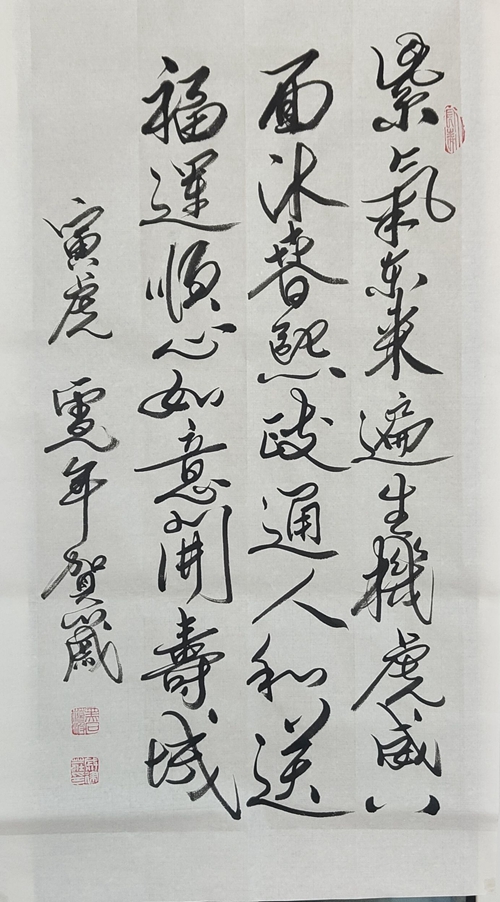 紫氣東来遍生機虎威八
面沐春熙政通人和送
福運順心如意開壽域
寅虎 年賀歲